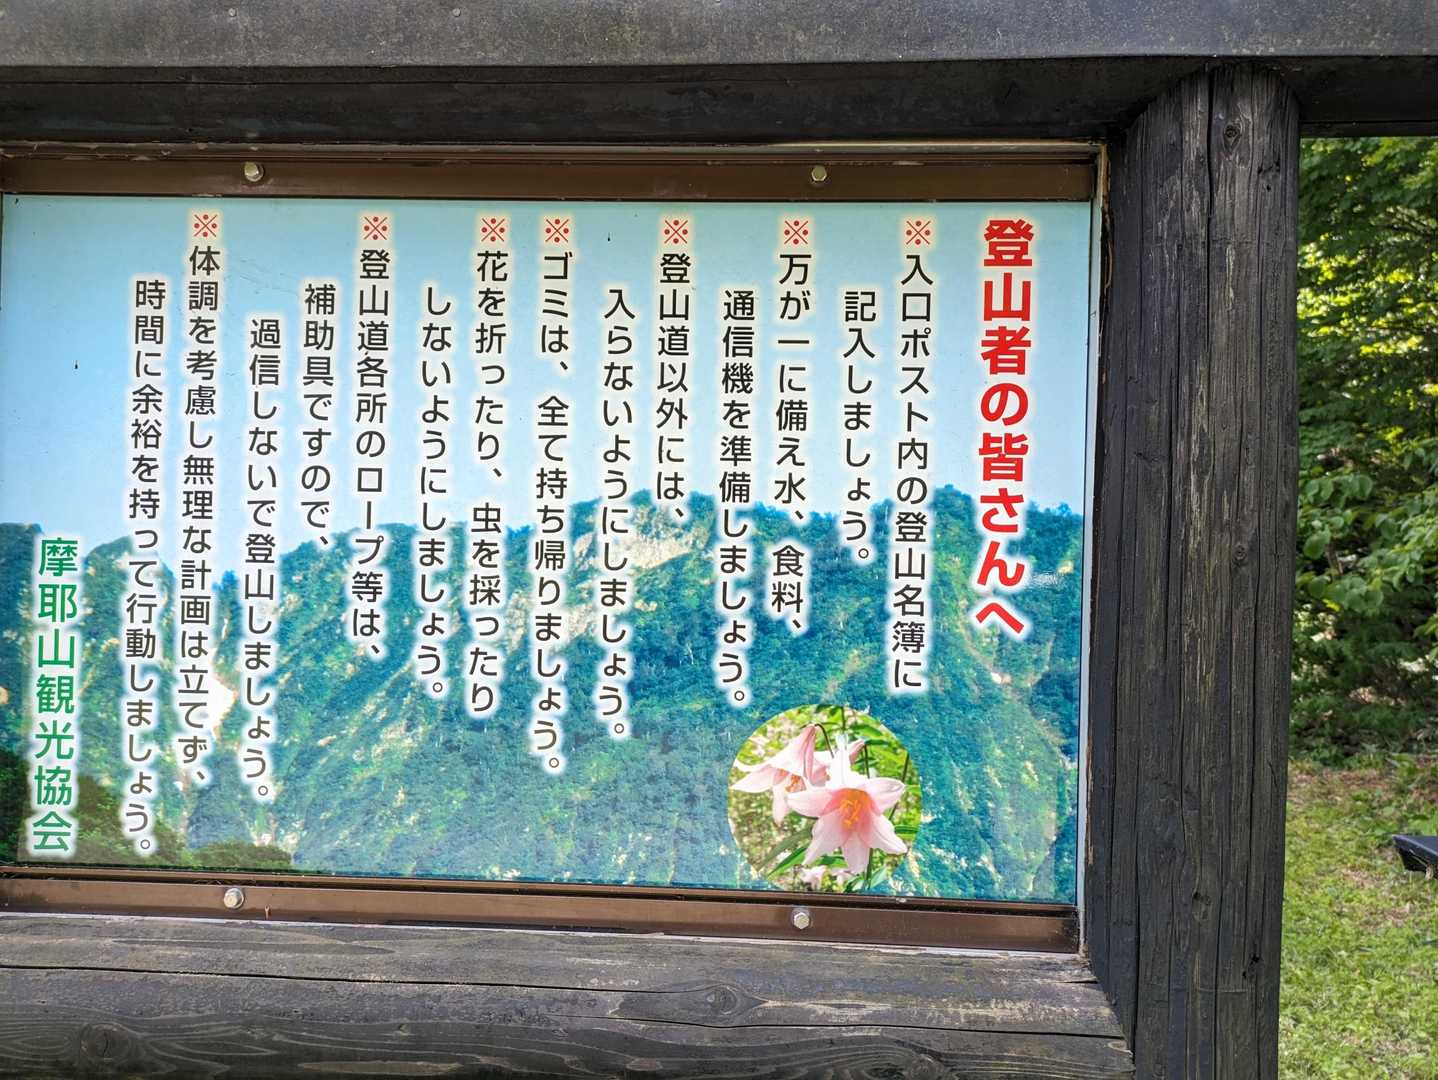 登山者の皆さんへ
※入口ポスト内の登山名簿に
記入しましょう。
※万が一に備え水、食料、
通信機を準備しましょう。
※登山道以外には、
入らないようにしましょう。
※ゴミは、全て持ち帰りましょう。
※花を折ったり、虫を採ったり
しないようにしましょう。
※登山道各所のロープ等は、
補助具ですので、
過信しないで登山しましょう。
※体調を考慮し無理な計画は立てず、
時間に余裕を持って行動しましょう。
摩耶山観光協会